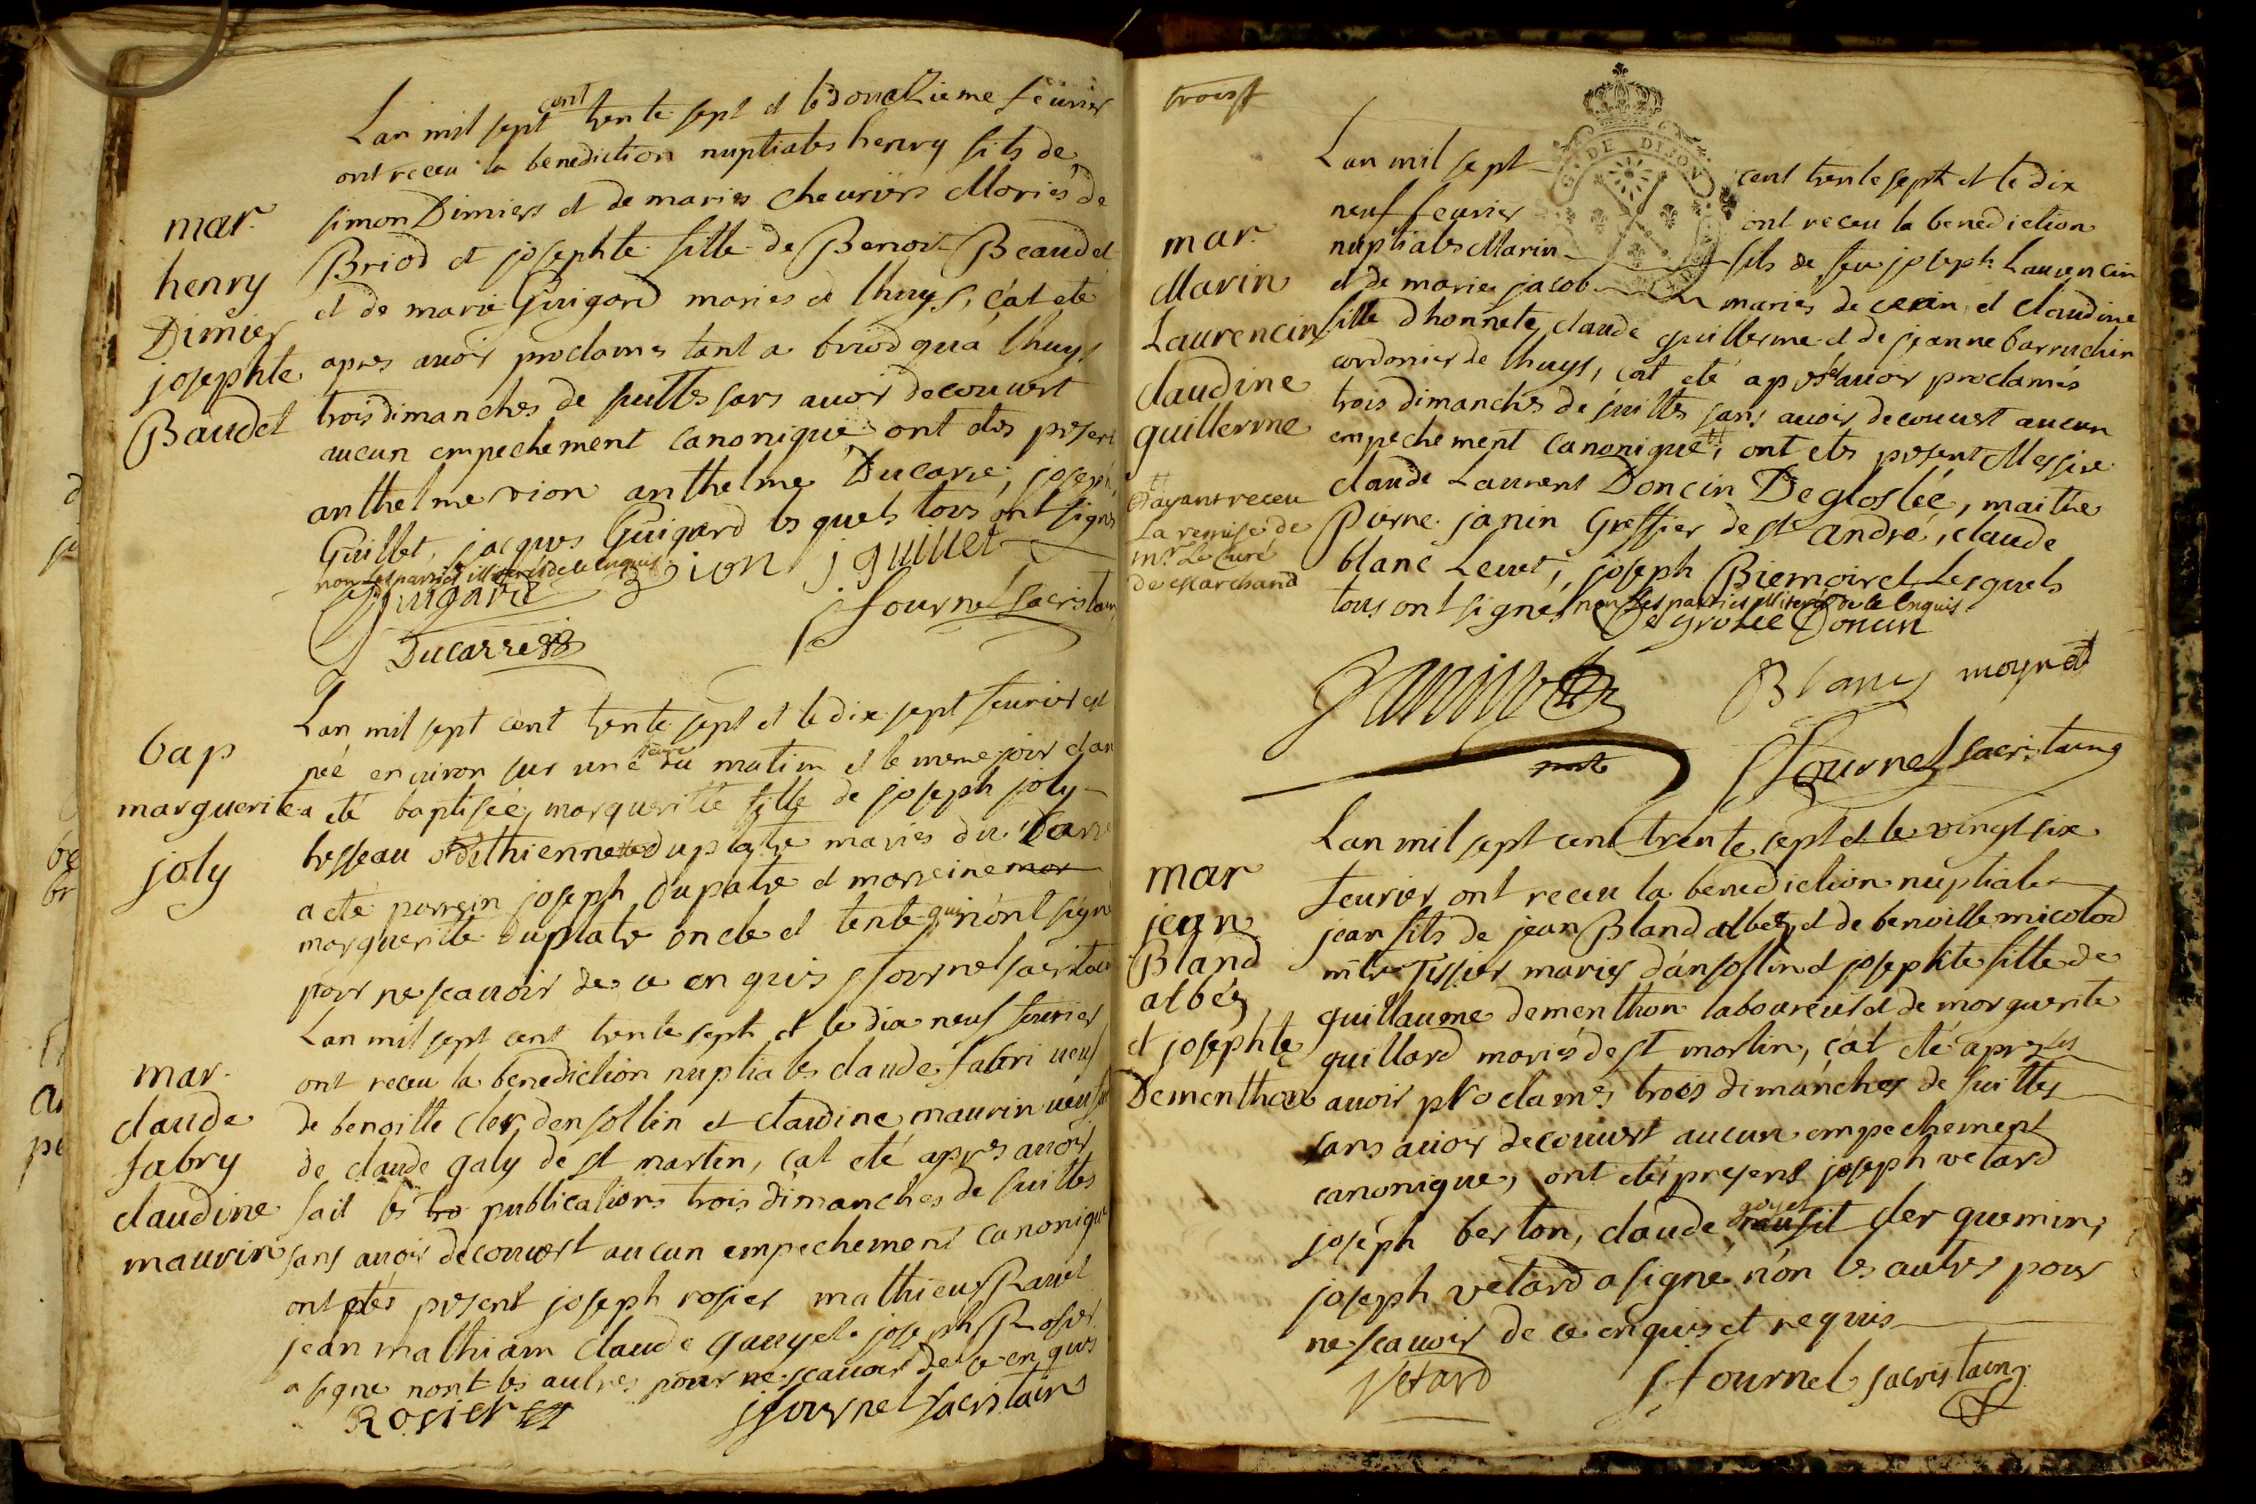 Lan mil sept cent trente sept et le douzieme feurier
ont receu la benediction nuptiales henry fils de
simon Dimiers et de maries cheuriers Mariés de
Briod et josephte fille de Benoit Beaudet
et de marie Guigard maries de lhuys, çat eté
apres auoir proclamés tant a briod qua lhuys
trois dimanches de suittes sans auoir decouuert
aucun empechement canonique ont etés present
anthelme vion anthelme Ducarre, joseph
Guillet, jacques Guigard lesquels tous ont signés
non les parties illiterés de ce enquis
mar.
henry
Dimier
josephte
Baudet
Guigard
vion
j guillet
Ducarre
jfournel sacristain
Lan mil sept cent trente sept et le dix sept feurier est
née enuiron sur une heure du matin et le meme jour dan
a eté baptisée, marguerite fille de joseph joly
tresseau et dethiennette duplatre mariés du
a eté parrein joseph duplatre et marreine mar
marguerite Duplatre oncle et tente qui n'ont signé
pour ne scauoir de ce enquis jfournel sacristain
bap
marguerite
joly
Lan mil sept cent trente sept et le dix neuf feurier
ont receu la benediction nuptiales claude fabri ueuf
de benoitte cler densollin et claudine maurin ueufue
de claude galy de st martin, cat eté apres auoir
fait les tro publications trois dimanches de suittes
sans auoir decouuert aucun empechement canonique
ont etés present joseph rosier mathieu Rauet
jean mathiam claude gauyet joseph Rosier
a signe nont les autres pour ne scauoir de ce enquis
mar.
claude
fabry
claudine
maurin
Rosier
jfournel sacristain
trois
Lan mil sept cent trente sept et le dix
neuf feurier ont receu la benediction
nuptiales Marin fils de feu joseph Laurencin
et de marie jacob maries de cerin et claudine
fille dhonnete claude guillerme et de jeanne barruchin
cordonier de lhuys, cat eté apres auoir proclamés
trois dimanches de suittes sans auoir decouuert aucun
empechement canonique tt ont etés present Messire
claude Laurent Doncin De gloslée, maitre
Pierre janin Greffier de st andré, claude
blanc Leuet, joseph Biemoiret Lesquels
tous ont signé non les parties illiterés de ce enquis
G. DE DIJON
mar
Marin
Laurencin
claudine
guillerme
tt
Et ayant receu
La remise de
mr. Le Curé
de Marchand
De Grolée Doncin
Janin
Blanc
moynat
jfournel sacristaing
Lan mil sept cent trente sept et le vingt six
feurier ont receu la benediction nuptiale
jean fils de jean Bland albez et de benoitte micolod
mtre Tissier maries dansollin et josephte fille de
guillaume dementhon laboureur et de morguerite
guillard mariés de st martin, çat eté apres les
auoir proclamés trois dimanches de suittes
sans auoir decouuert aucun empechement
canonique, ont etés present joseph vetard
joseph berton, claude goyet der quemin,
joseph vetard a signé non les autres pour
ne scauoir de ce enquis et requis
mar
jean
Bland
albéz
et josephte
Dementhon
Vetard
jfournel sacristaing